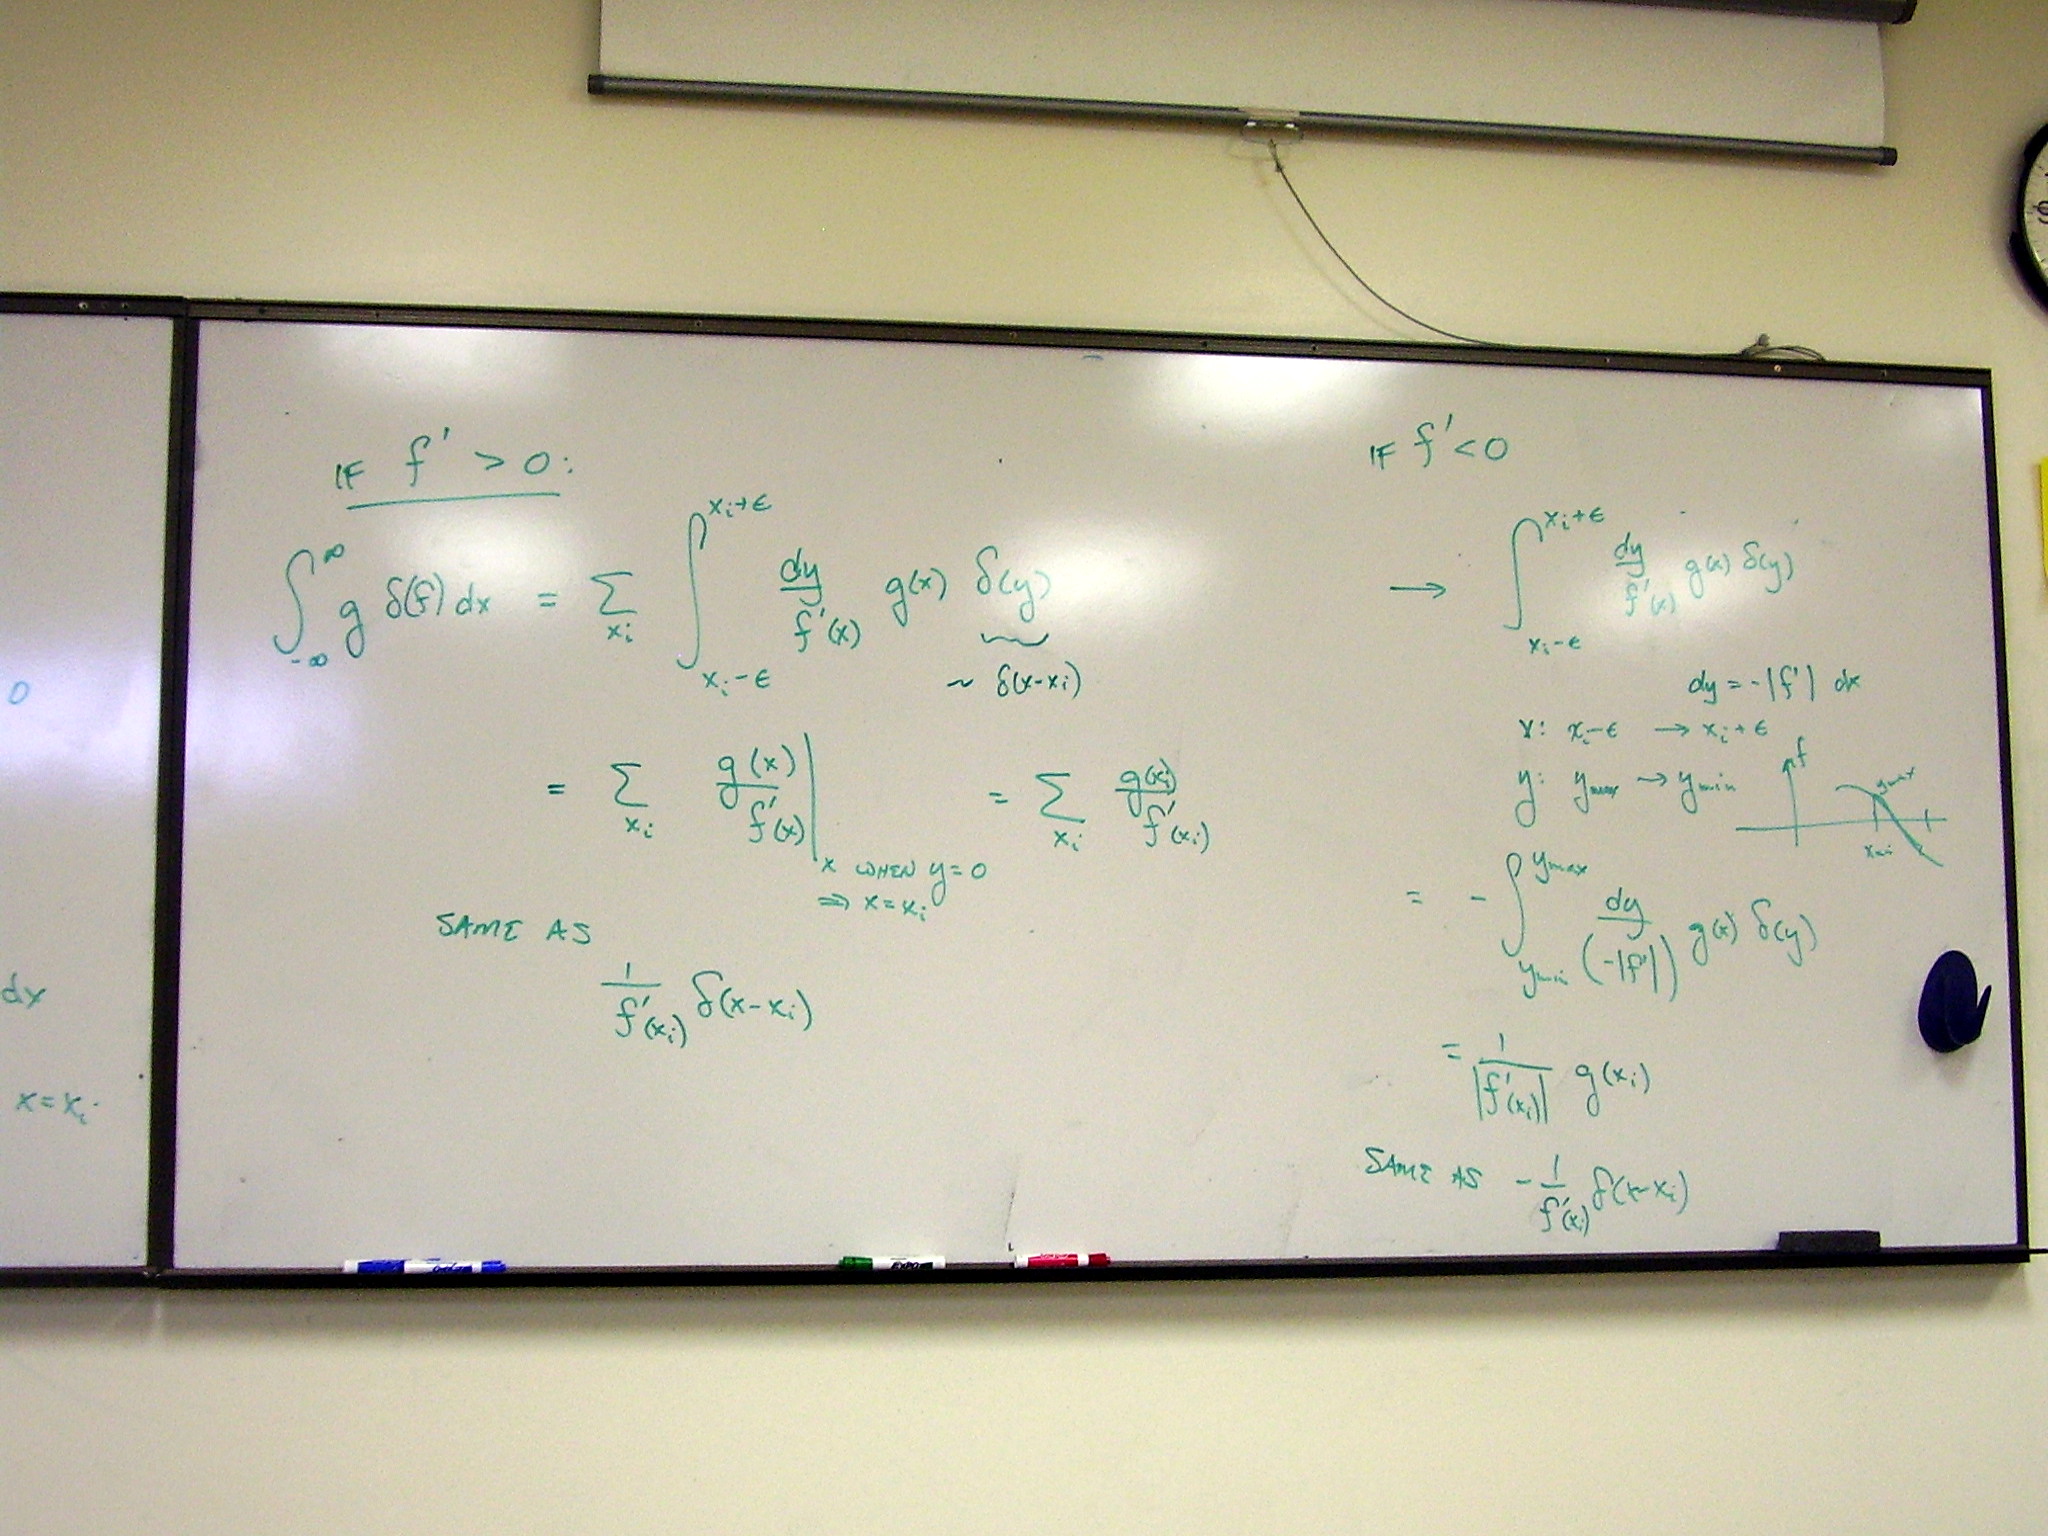 0
dx
x = xᵢ
IF f' > 0:
∫_{-∞}^{∞} g δ(f) dx = Σ_{xᵢ} ∫_{xᵢ-ϵ}^{xᵢ+ϵ} dy/f'(x) g(x) δ(y)
~ δ(x-xᵢ)
= Σ_{xᵢ} g(x)/f'(x) | x WHEN y=0 ⇒ x=xᵢ = Σ_{xᵢ} g(xᵢ)/f'(xᵢ)
SAME AS
1/f'(xᵢ) δ(x-xᵢ)
IF f' < 0
→ ∫_{xᵢ-ϵ}^{xᵢ+ϵ} dy/f'(x) g(x) δ(y)
dy = -|f'| dx
x: xᵢ-ϵ → xᵢ+ϵ
y: ymax → ymin
f
ymax
xmin
= - ∫_{ymin}^{ymax} dy/(-|f'|) g(x) δ(y)
= 1/|f'(xᵢ)| g(xᵢ)
SAME AS - 1/f'(xᵢ) δ(x-xᵢ)
EXPO